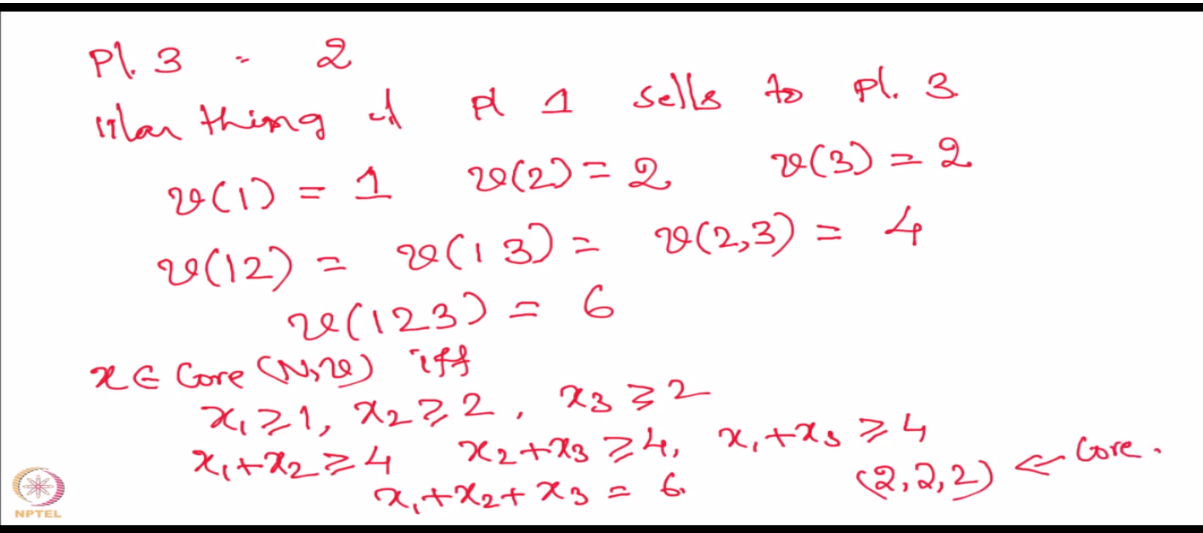 Pl. 3 - 2
thing if pl 1 sells to pl. 3
v(1) = 1 v(2) = 2 v(3) = 2
v(12) = v(13) = v(2,3) = 4
v(123) = 6
x ∈ Core (N,v) iff
x₁ ≥ 1, x₂ ≥ 2, x₃ ≥ 2
x₁+x₂ ≥ 4 x₂+x₃ ≥ 4, x₁+x₃ ≥ 4
x₁+x₂+x₃ = 6 (2,2,2) ← Core.
NPTEL